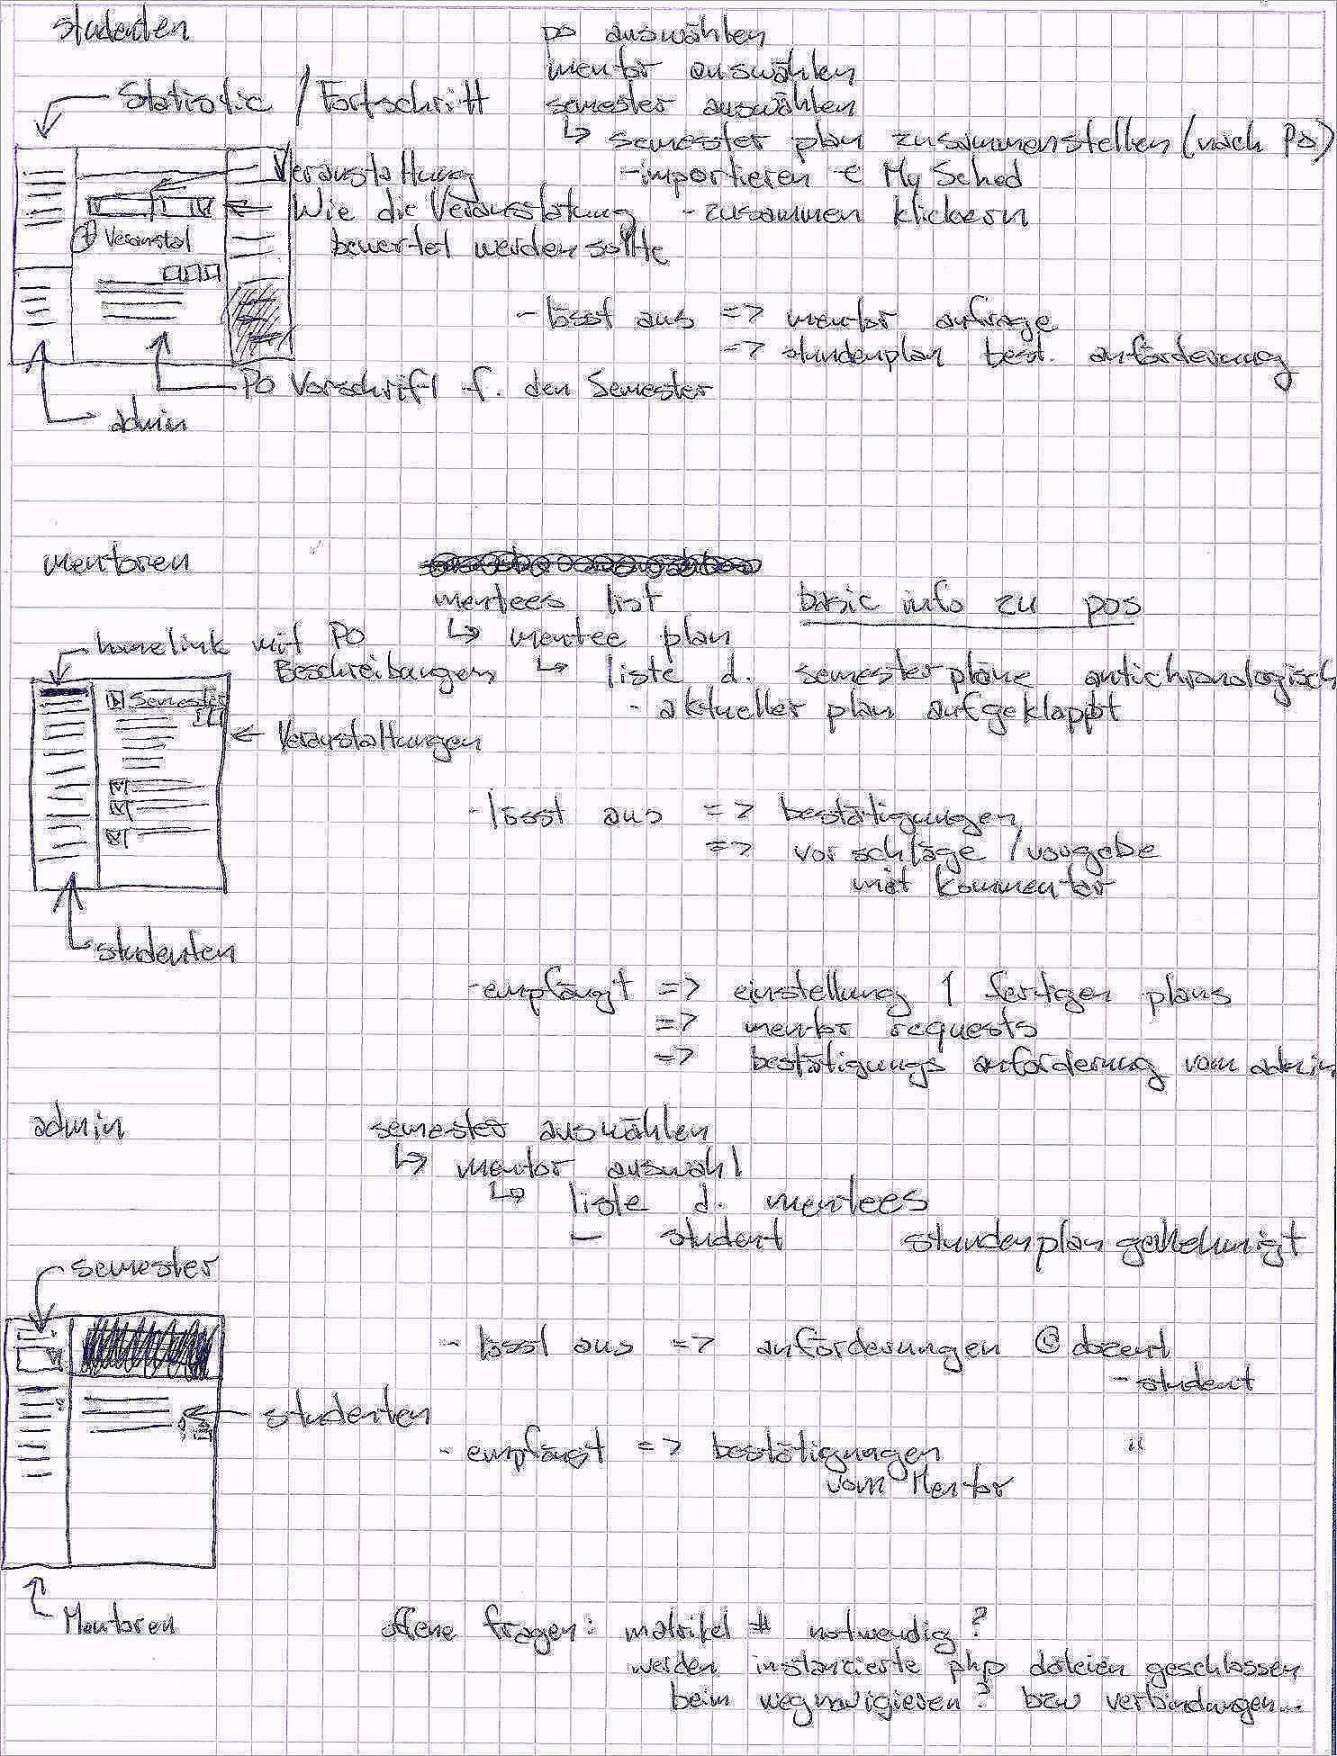 studenten
po auswählen
mentor auswählen
Statistic / Fortschritt
semester auswählen
↳ semester plan zusammenstellen (nach Po)
Veranstaltung
- importieren e My Sched
Wie die Veranstaltung
bewertet werden sollte
- zusammen klickern
+ Veranstal
- lösst aus => mentor anfrage
=> stundenplan best. anforderung
PO Vorschrift f. den Semester
admin
mentoren
mentees list
basic info zu pos
homelink mit PO
Beschreibungen
↳ mentee plan
↳ liste d. semesterpläne antichronologisch
- aktueller plan aufgeklappt
Semester
Veranstaltungen
- lösst aus => bestätigungen
=> vorschläge / vorgabe
mit kommentar
studenten
- empfängt => einstellung 1 fertigen plans
=> mentor requests
=> bestätigungs anforderung vom admin
admin
semester auswählen
↳ mentor auswahl
↳ liste d. mentees
– student stundenplan genehmigt
semester
- lösst aus => anforderungen @ dozent
- student
studenten
- empfängt => bestätigungen "
vom Mentor
Mentoren
offene fragen: matrikel # notwendig?
werden instanzierte php dateien geschlossen
beim wegnavigieren? bzw verbindungen...